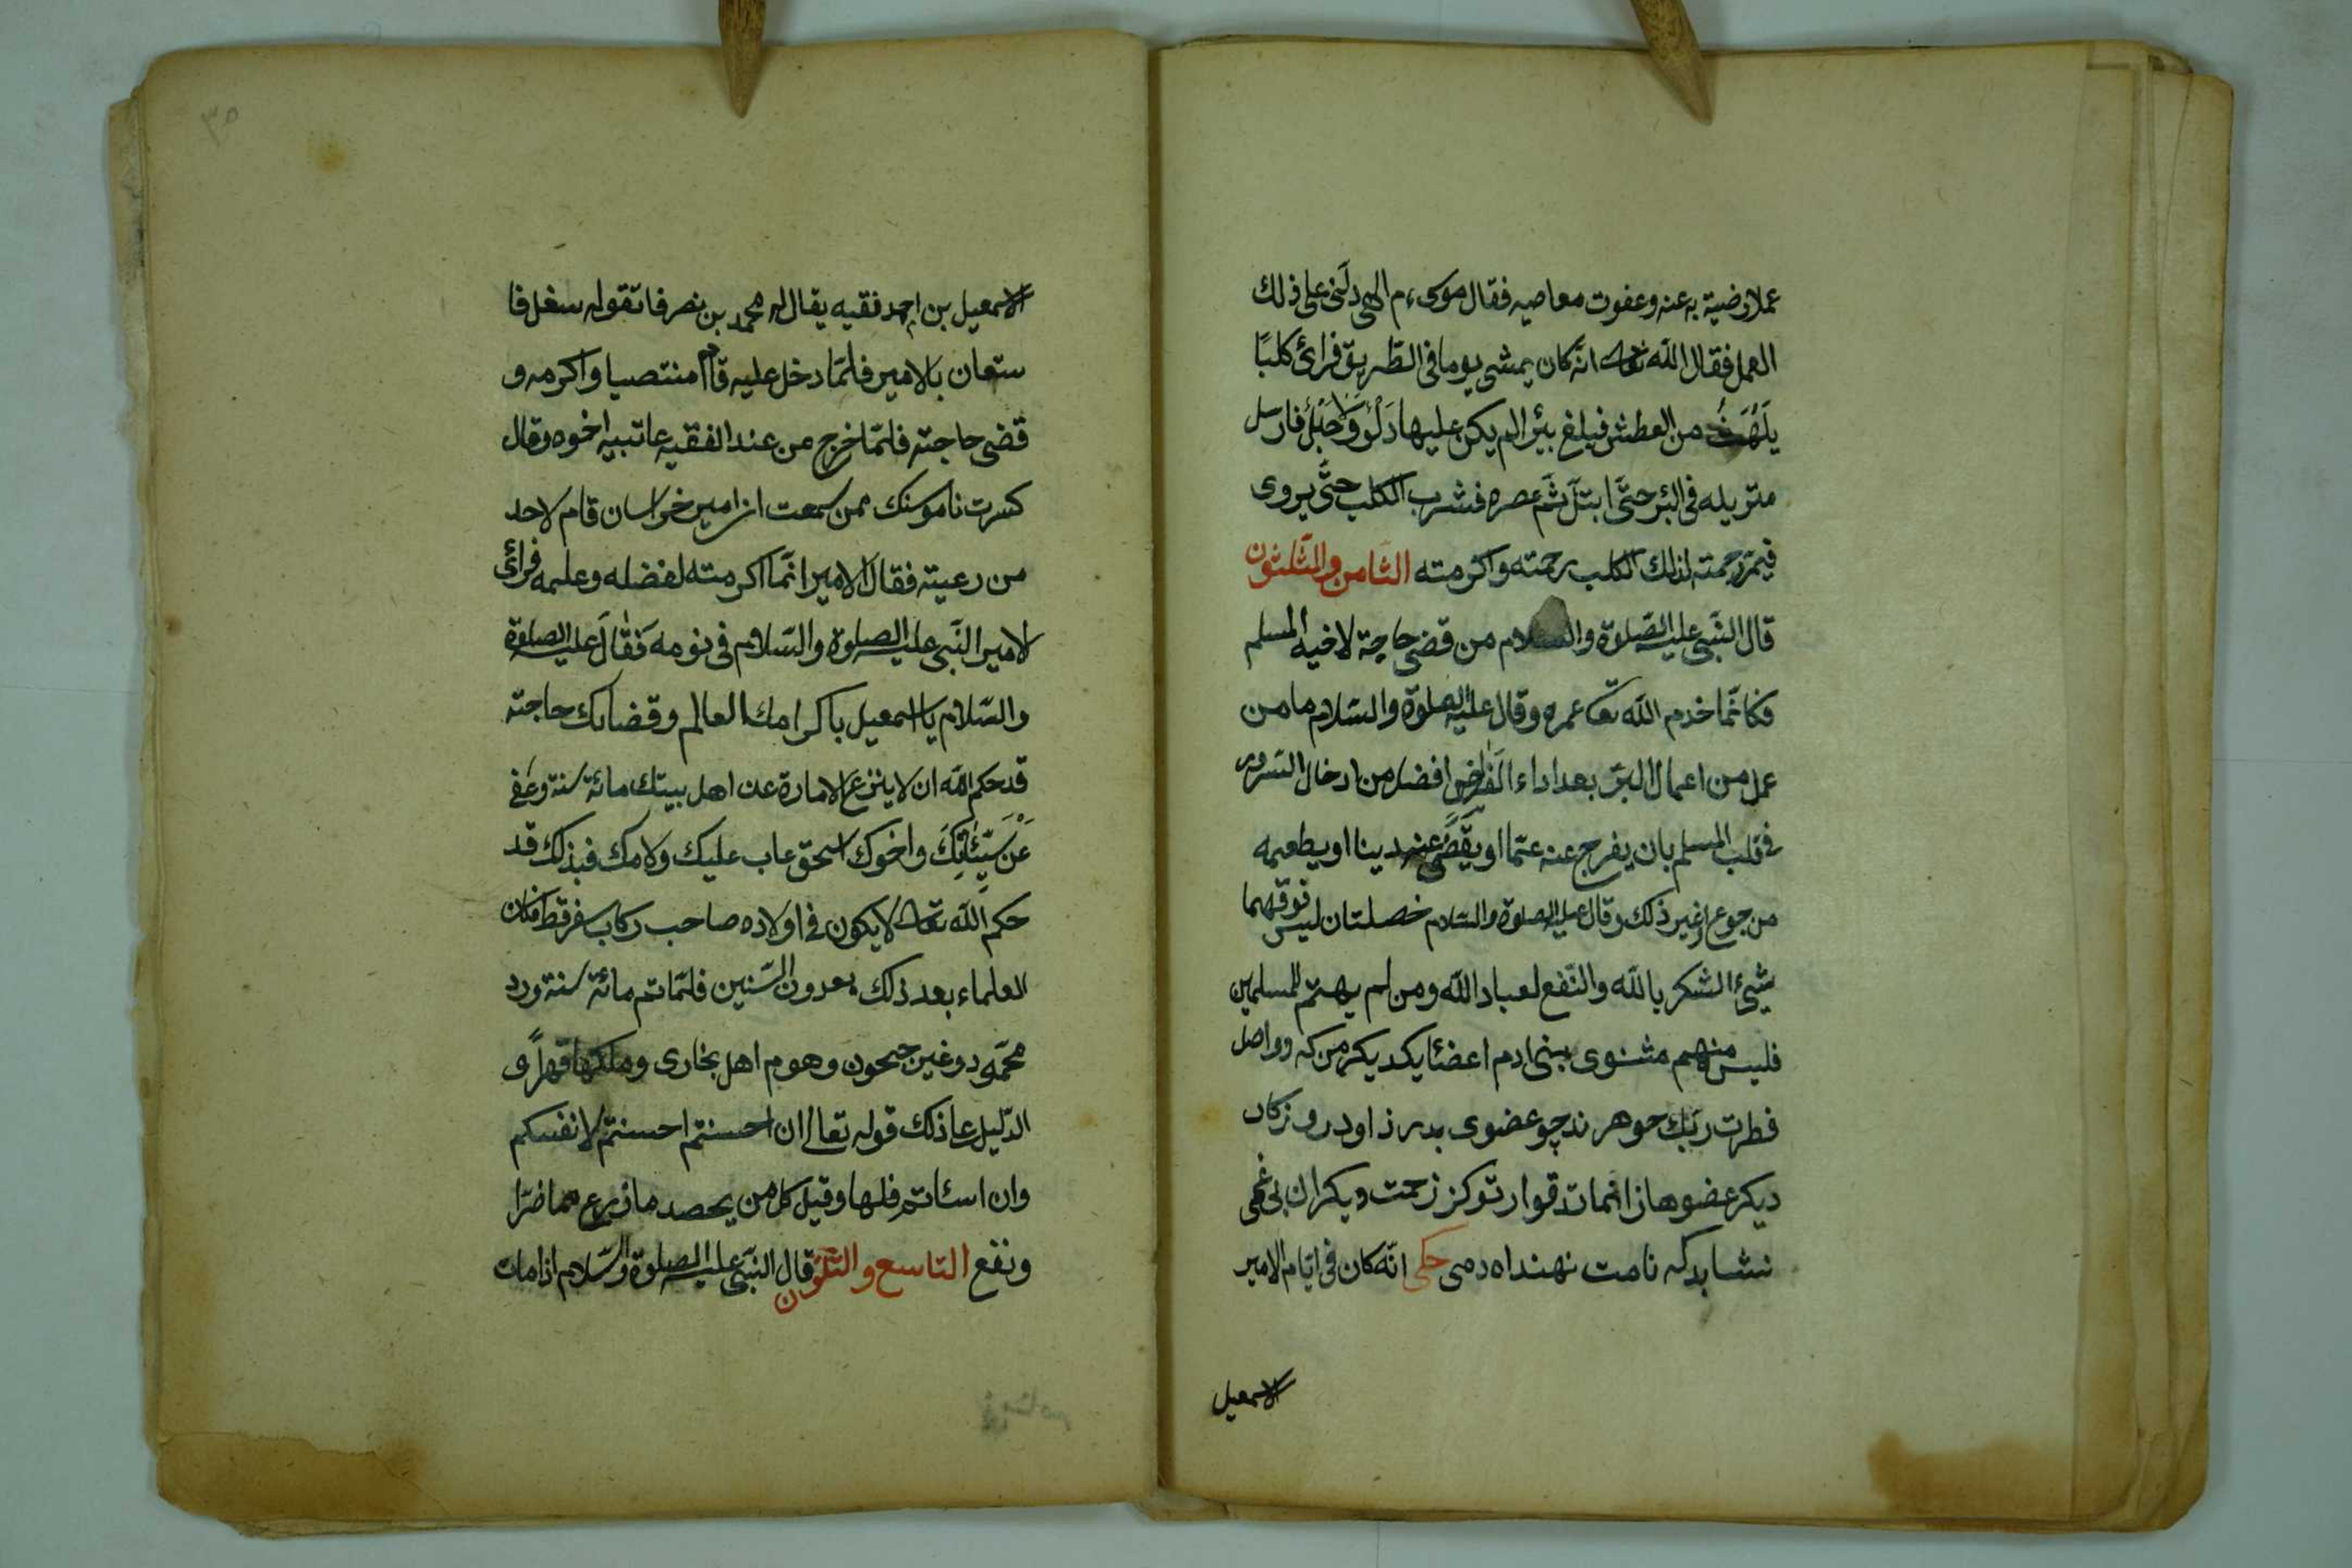 عملا رضيت به عنه وعفوت معاصيه فقال موسىءم الهى دلّنى على ذلك
العمل فقال اللّه تعالى انّه كان يمشى يوما فى الطّريق فرائ كلبًا
يَلْهَثُ من العطش فبلغ بئرا لم يكن عليها دَلْوٌ وَلَا حَبْلٌ فارسل
منديله فى البئر حتَّى ابتلّ ثمّ عصره فشرب الكلب حتَّى يروى
فبمرحمته لذلك الكلب رحمته واكرمته الثّامن والثّلثون
قال النّبى عليه الصّلوة والسلام من قضى حاجة لاخيه المسلم
فكانّما خدم اللّه تعا عمره وقال عليه الصلوة والسّلام ما من
عمل من اعمال البرّ بعد اداء الفرائض افضل من ادخال السّرور
فى قلب المسلم بان يفرج عنه غمّا او يقضى عنه دينا او يطعمه
من جوع او غير ذلك وقال عليه الصلوة والسّلام خصلتان ليس فوقهما
شيئ الشكر باللّه والنّفع لعباد اللّه ومن لم يهتم للمسلمين
فليس منهم مثنوى بنى ادم اعضئا يكديكرمن كه وواصل
فطرت ريك جوهرند چو عضوى بدرذ اود روزكار
ديكر عضوها را انماند قرار تو كز زحمت ديكران بى غمى
نشايد كه نامت نهند اه دمى حكى انّه كان فى ايّام الامير
الاسمعيل
الاسمعيل بن احمد فقيه يقال له محمد بن نصر فا تقوله سغل فا
ستعان بالامير فلمّا دخل عليه قام منتصبا واكرمه و
قضى حاجته فلمّا خرج من عند الفقيه عاتبيه اخوه وقال
كسرت ناموسك ممن سمعت ان امير خراسان قام لاحد
من رعيته فقال الامير انّما اكرمته لفضله وعلمه فرائ
لامير النّبى عليه الصلوة والسّلام فى نومه فَقَالَ عليه الصلوة
والسّلام يا اسمعيل باكرامك العالم وقضائك حاجته
قد حكم اللّه ان لا ينزع الامارة عن اهل بيتك مائة سنة وعفى
عَنْ سَيّئَاتِكَ واخوك اسحق عاب عليك ولامك فبذلك قد
حكم اللّه تعالى لا يكون فى اولاده صاحب ركاب سفر قط فكان
العلماء بعد ذلك يعدون السّنين فلمّا تم مائة سنة ورد
محمّد وغين جيحون وهوم اهل بخارى وملكها قهراً و
الدّليل على ذلك قوله تعالى ان احسنتم احسنتم لانفسكم
وان اسئاتم فلها وقيل كل من يحصد ما زرع مما ضرّا
ونفع التاسع والثلثون قال النّبى عليه الصلوة والسّلام اذا مات